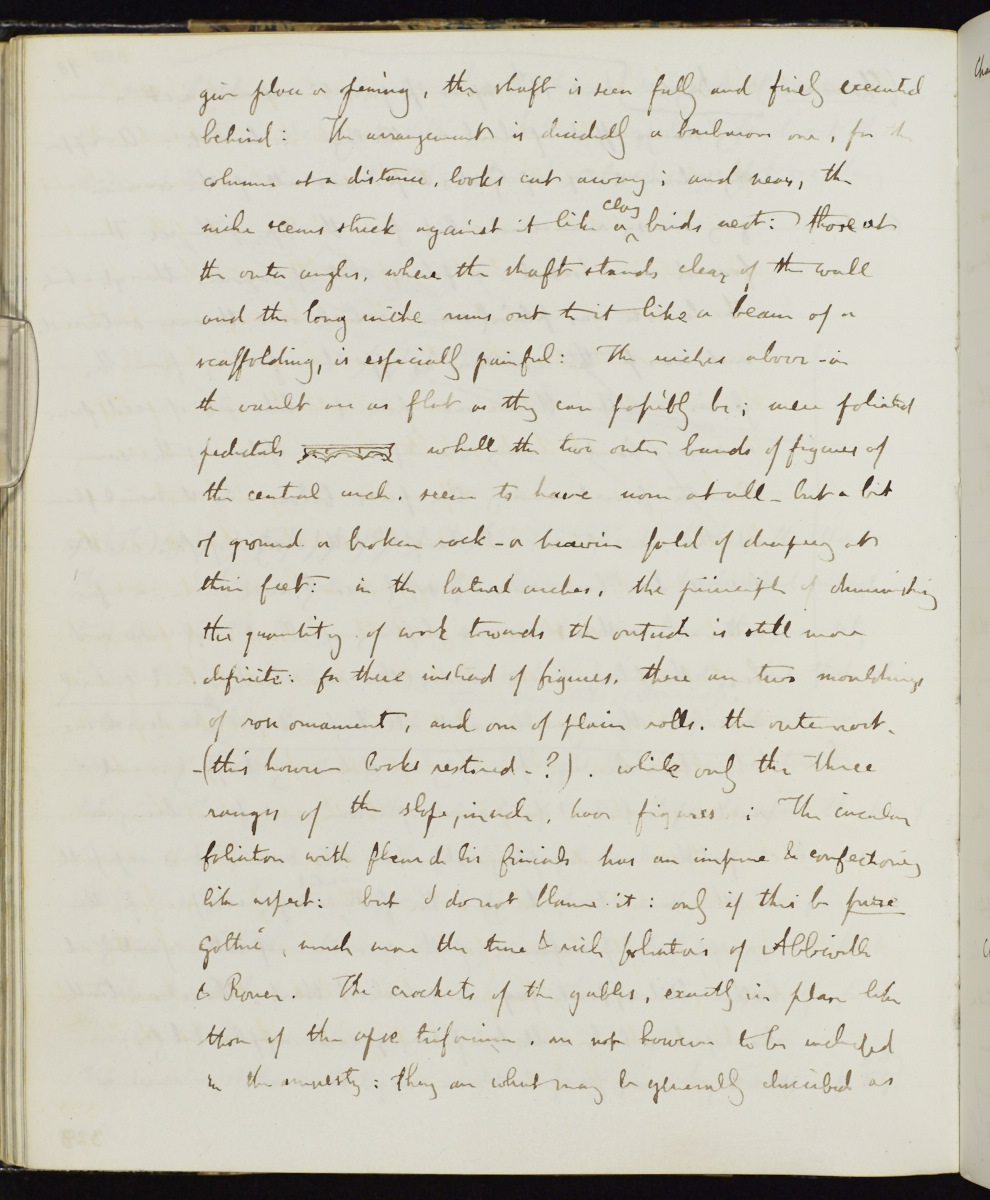 give place or opening, the shaft is seen fully and finely executed
behind: The arrangement is decidedly a barbarous one, for the
column at a distance, looks cut away; and near, the
niche seems stuck against it like a clay birds nest: those at
the outer angles, where the shaft stands clear of the wall
and the long niche runs out to it like a beam of a
scaffolding, is especially painful: The niches above - in
the vault are as flat as they can possibly be; mere foliated
pedestals while the two outer bands of figures of
the central arch. seem to have none at all - but a bit
of ground or broken rock - or heavier fold of drapery at
their feet: in the lateral arches, the principle of diminishing
the quantity of work towards the outside is still more
definite: for there instead of figures, there are two mouldings
of rose ornament, and one of plain rolls. the outermost.
- (this however looks restored - ?). while only the three
ranges of the slope, inside, have figures: The circular
foliation with fleur de lis finials has an impure & confectionery
like aspect: but I do not blame it: only if this be pure
gothic, much more the true & rich foliations of Abbeville
& Rouen. The crockets of the gables, exactly in place like
those of the apse triforium. are not however to be included
in the amnesty: They are what may be generally described as